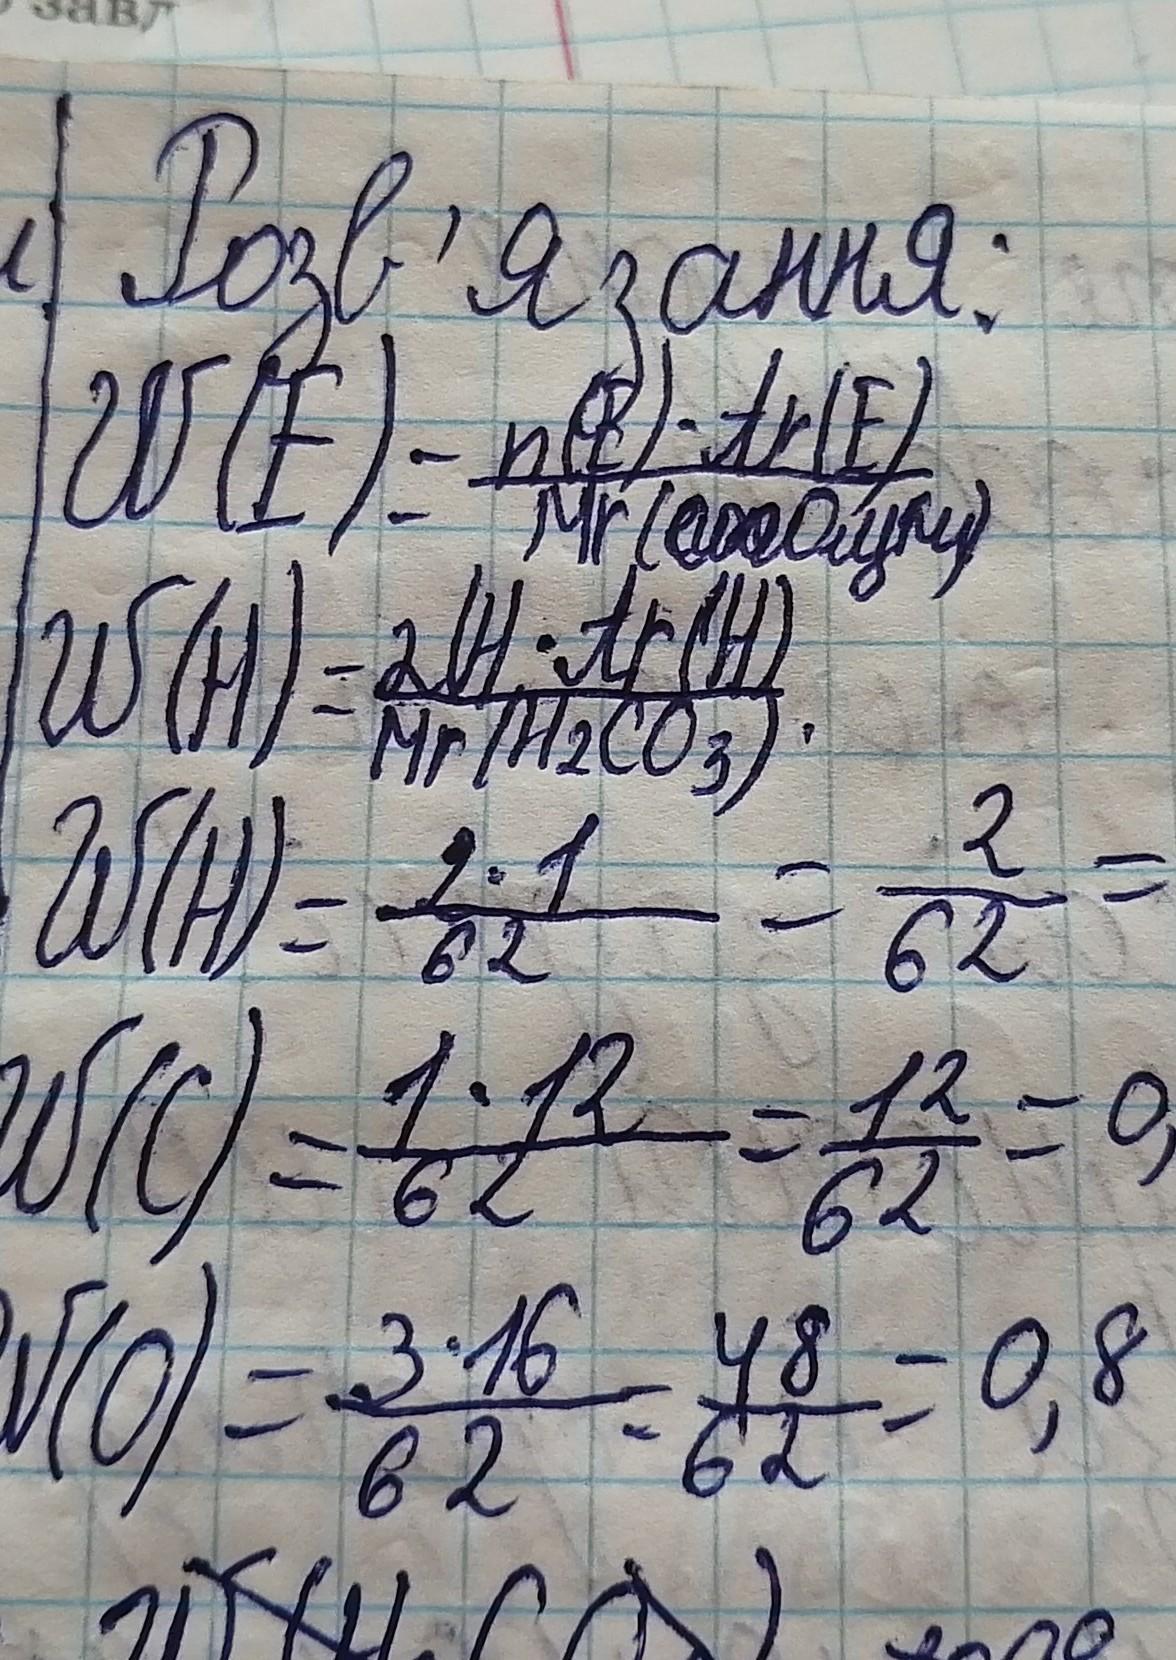 завд
Розв'язання:
W(E) = n(E)·Ar(E) / Mr(
W(H) = 2(H·Ar(H) / Mr(H2CO3).
W(H) = 2·1 / 62 = 2 / 62 =
W(C) = 1·12 / 62 = 12 / 62 = 0,
W(O) = 3·16 / 62 = 48 / 62 = 0,8